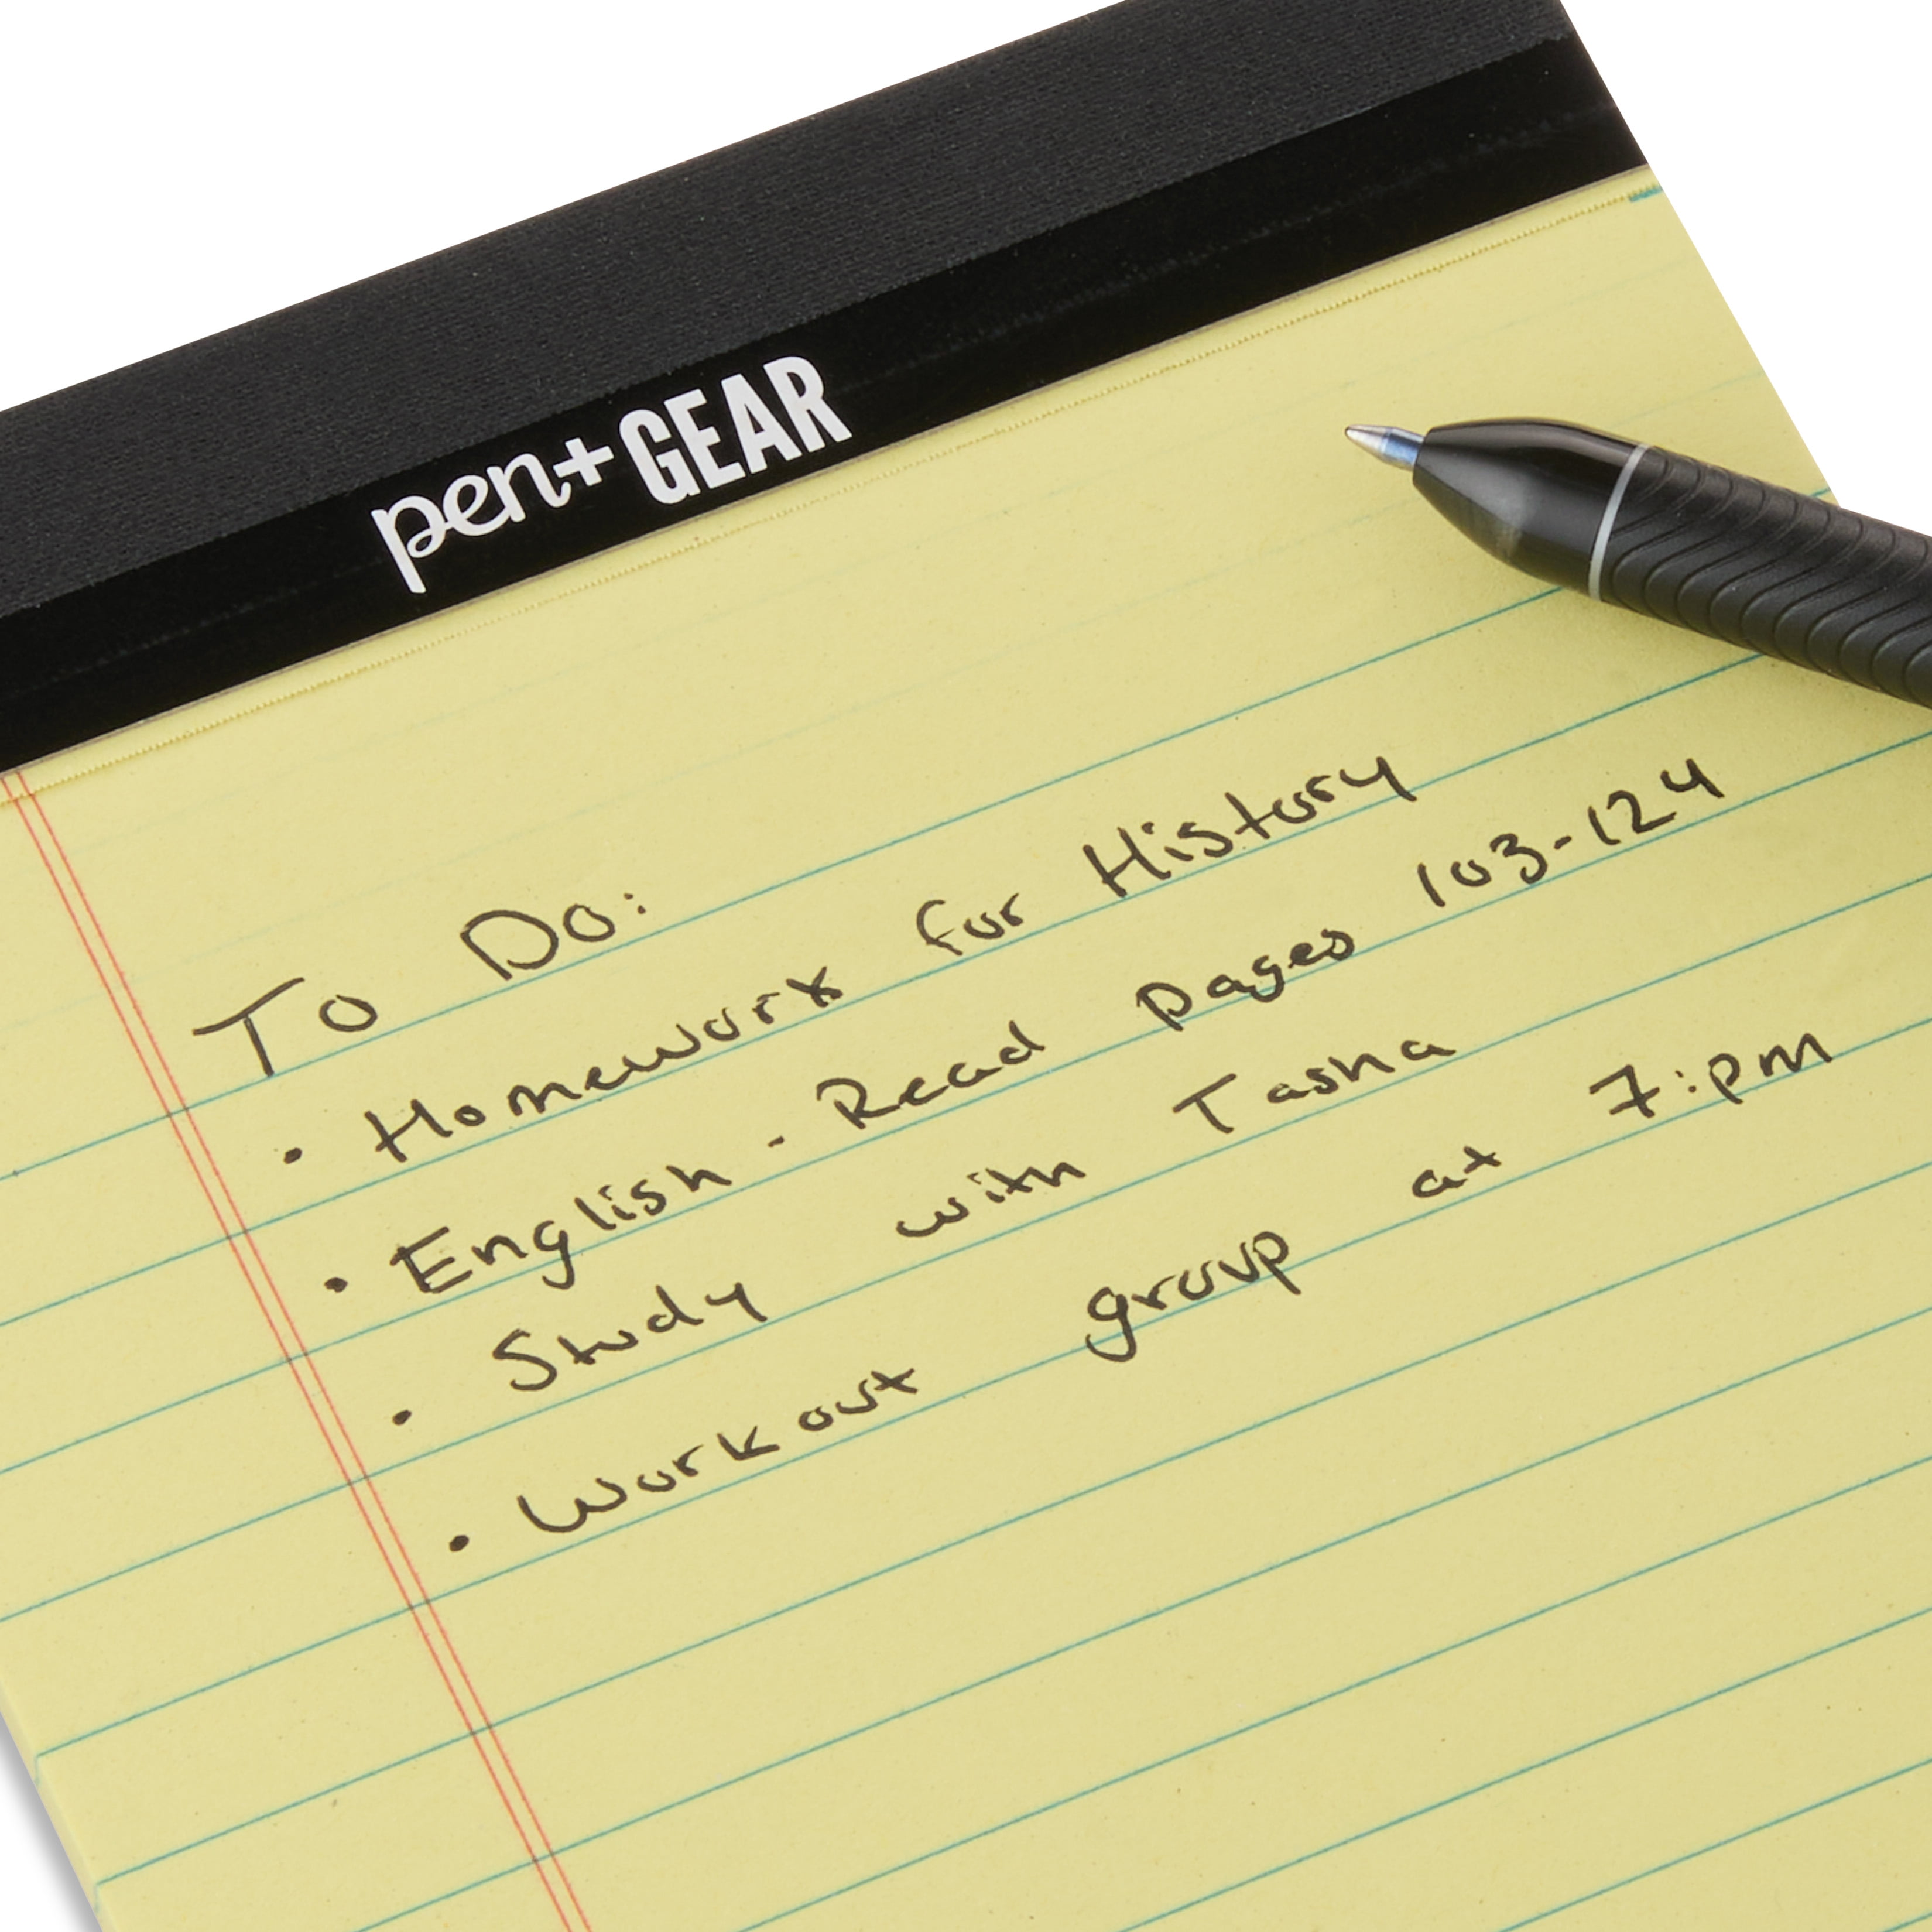 pen+GEAR
To Do:
• Homework for History
• English - Read pages 103-124
• Study with Tasha
• Workout group at 7:pm